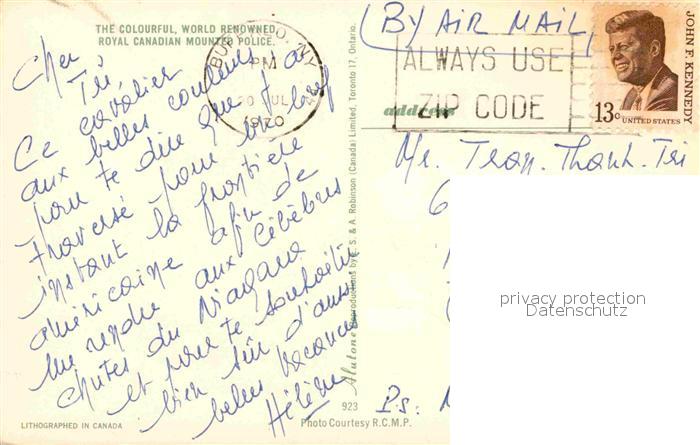 THE COLOURFUL, WORLD RENOWNED
ROYAL CANADIAN MOUNTED POLICE.
Cher
Tri
Ce cavalier
aux belles couleurs
pour te dire que j'ai
traversé pour un bref
instant la frontière
américaine afin de
me rendre aux Célèbres
chutes du Niagara
et pour te souhaiter
bien sûr d'aussi
belles vacances
Hélène
LITHOGRAPHED IN CANADA
923
Photo Courtesy R.C.M.P.
Reproductions by E. S. & A. Robinson (Canada) Limited, Toronto 17, Ontario.
BUFFALO, N.Y.
PM
JUL
1970
ALWAYS USE
ZIP CODE
JOHN F. KENNEDY
13c
UNITED STATES
(BY AIR MAIL)
address
Mr. Tran. Thanh. Tri
6
Ps:
privacy protection
Datenschutz